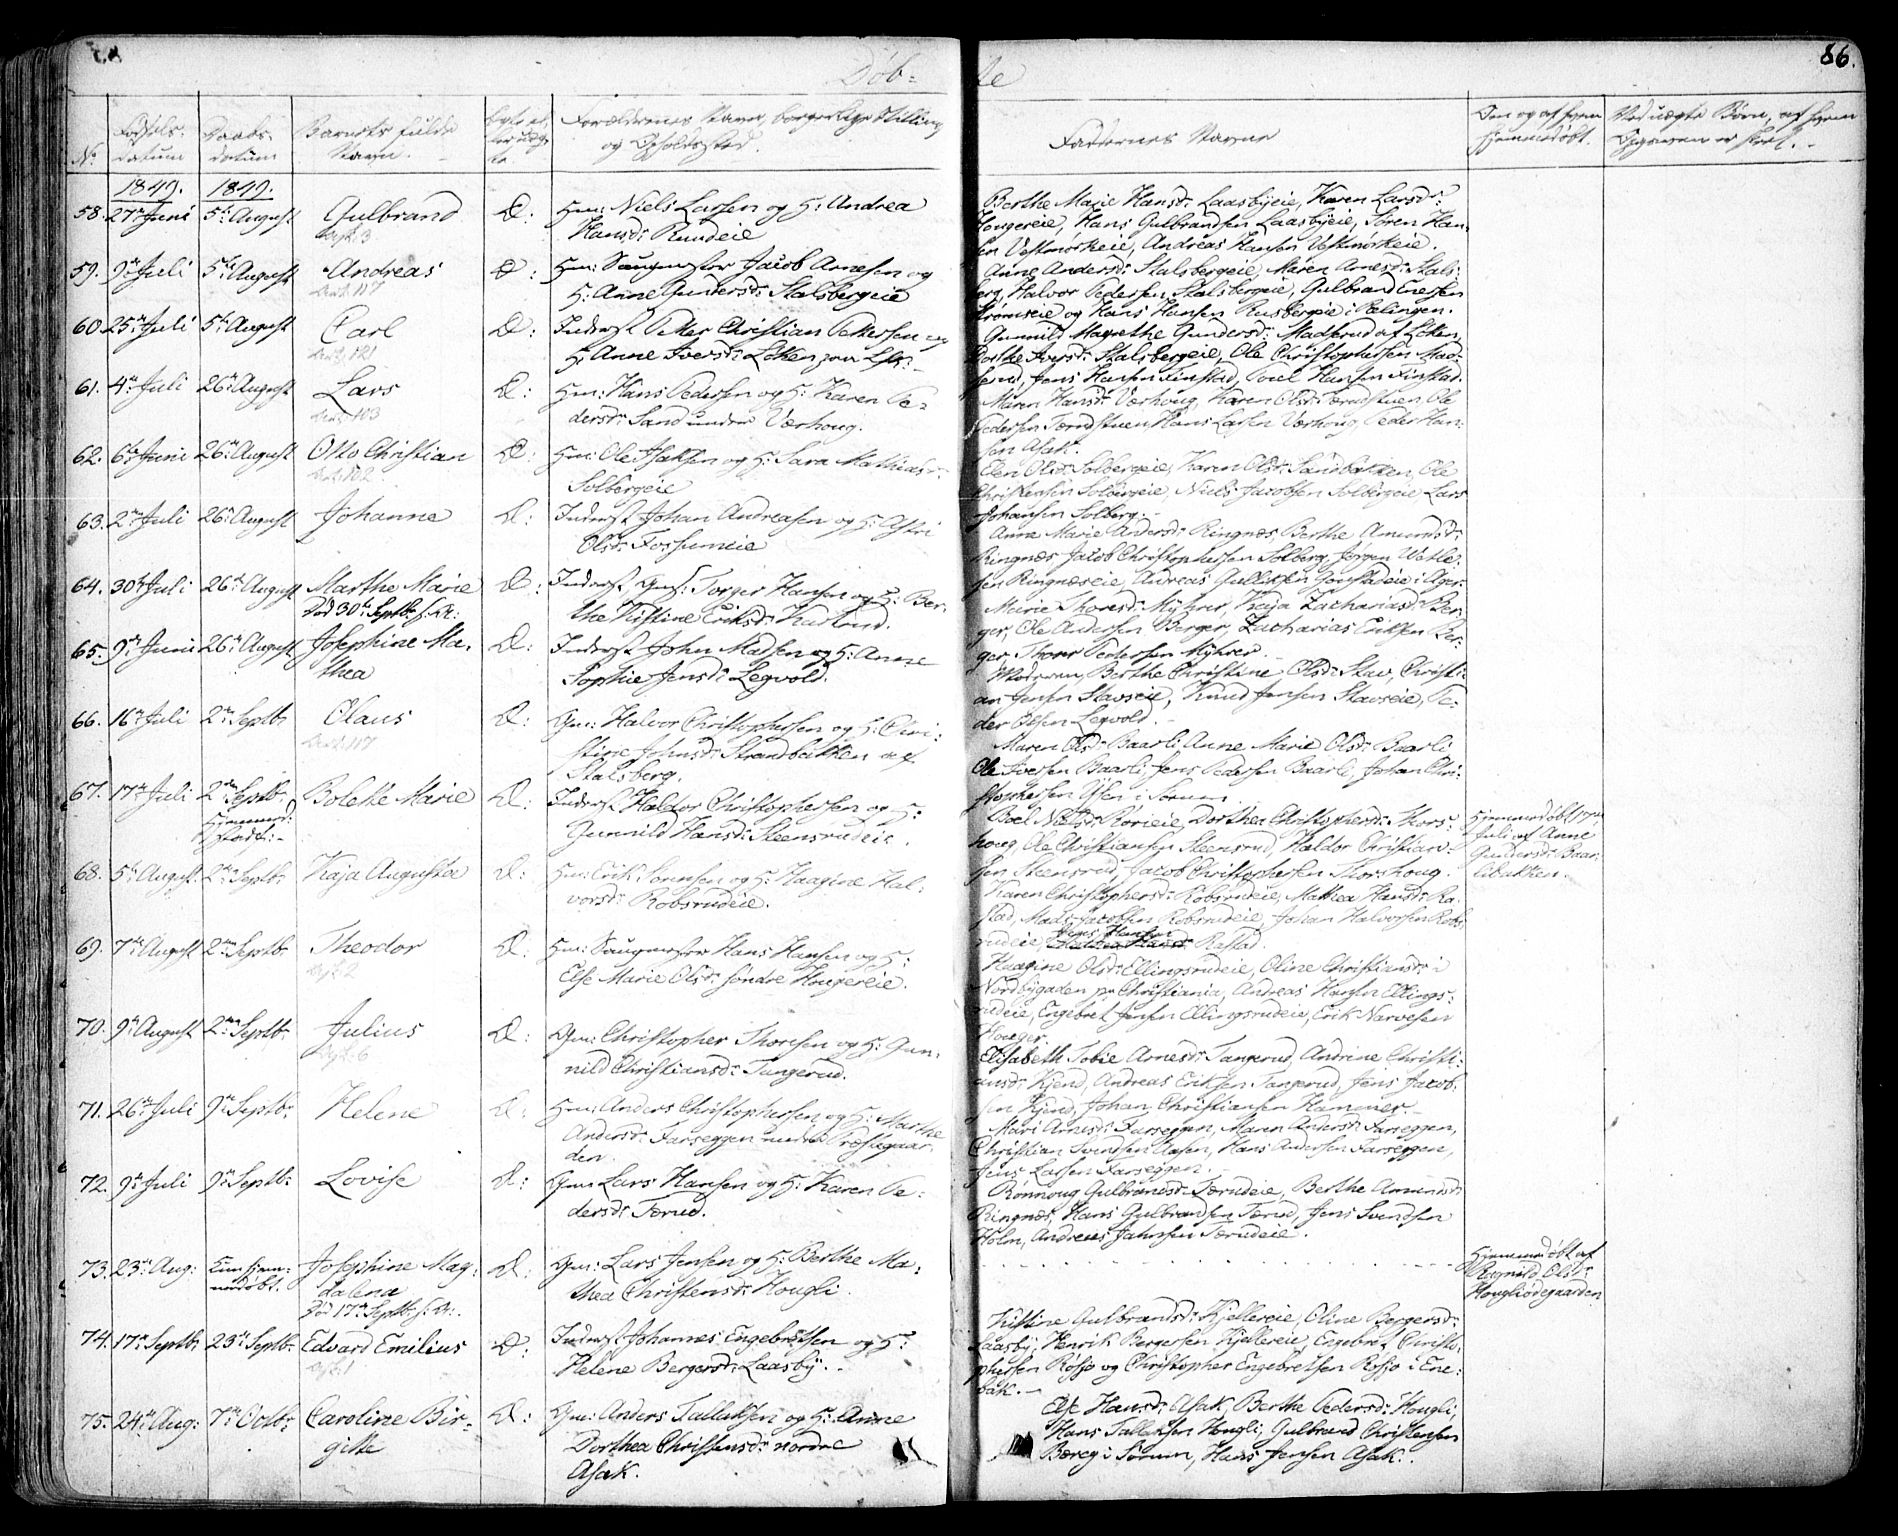 86.
Døb-
te
No
Fødsels-
datum
Daabs-
datum
Barnets fulde
Navn.
Forældrenes Navn, borgerlige Stilling
og Opholdssted.
Faddernes Navne
Den og af hvem
hjemmedøbt.
Ved uægte Børn, af hvem
1849. 1849.
58. 27de Juni 5te August Gulbrand Æ: Hm: Niels Larsen og H: Andrea
Hansdr Ruudeie
Berthe Marie Hansdr Laasbyeie, Karen Larsdr
Hougereie, Hans Gulbrandsen Laasbyeie, Søren Han-
sen Vestmorkeie, Andreas Hansen Vestmorkeie.
59. 9de Juli 5te August Andreas Æ: Hm: Saugmester Jacob Arnesen og
H: Anne Gundersdr Stalsbergeie
Anne Andersdr Stalsbergeie, Maren Arnesdr Stals-
berg, Halvor Pedersen Stalsbergeie, Gulbrand Enersen
Strømseie og Hans Hansen Rusbergeie i Relingen.
60. 25de Juli 5te August Carl Æ: Inderst Petter Christian Pettersen og
H: Anne Iversdr Løken
Gunnild Margrethe Gundersdr Madserud af Løken,
Dorthe Iversdr Stalsbergeie, Ole Christophersen Mad-
serud, Jens Hansen Finstad, Poul Hansen Finstad.
61. 4de Juli 26de August Lars Æ: Hm: Hans Pedersen og H: Karen Pe-
dersdr Sand under Værhoug.
Maren Hansdr Værhoug, Karen Olsdr Tærudstuen, Ole
Pedersen Tærudstuen, Hans Larsen Værhoug, Peder Han-
sen Asak.
62. 6te Juni 26de August Otto Christian Æ: Hm: Ole Isaksen og H: Sara Mathiasdr
Solbergeie
Elen Olsdr Solbergeie, Karen Olsdr Sandbakken, Ole
Christensen Solbergeie, Niels Jacobsen Solbergeie, Lars
Johansen Solberg.
63. 2den Juli 26de August Johanne Æ: Inderst Johan Andreasen og H: Astri
Olsdr Fossumeie
Anne Marie Andersdr Ringnæs, Berthe Amundsdr
Ringnæs, Jacob Christophersen Solberg, Jørgen Wetle-
sen Ringnæseie, Andreas Gulliksen
64. 30te Juli 26de August Marthe Marie Æ: Inderst Torger Hansen og H: Ber-
Død 30te Septbr s. A:
the Kistine Eriksdr
Marie Thoresdr Myhrer, Kaja Zachariasdr Ber-
ger, Ole Andersen Berger, Zacharias Eriksen Ber-
ger, Thore Pedersen Myhrer.
65. 9de Juni 26de August Josephine Ma- Æ: Inderst John Madsen og H: Anne
thea
Sophie Jensdr Legvold.
Moderen, Berthe Christine Olsdr Stav, Christi-
an Jensen Stavseie, Knud Jensen Stavseie, Pe-
der Olsen Legvold.
66. 16de Juli 2den Septbr Claus Æ: Gm: Halvor Christophersen og H: Chri-
stine Johnsdr Strandbakken af
Stalsberg.
Maren Olsdr Baarli, Anne Marie Olsdr Baarli
Ole Iversen Baarli, Jens Pedersen Baarli, Johan Chri-
stophersen i Sørum
67. 17de Juli 2den Septbr Bolette Marie Æ: Inderst Haldor Christophersen og H:
Hjemme-
Gunnild Hansdr Steensrudeie.
Boel Nielsdr Dorthea Christophersdr Thors-
houg, Ole Christiansen Steensrud, Haldor Christian-
sen Steensrud, Jacob Christophersen Thorshoug.
Hjemmedøbt 17de
Juli af Anne
Gundersdr Baar-
libakken.
68. 5te August 2den Septbr Kaja Augusta Æ: Hm: Erik Sørensen og H: Haagine Hal-
vorsdr Robsrudeie.
Karen Christophersdr Robsrudeie, Mathea Hansdr Ra-
stad, Mads Jacobsen Robsrudeie, Johan Halvorsen Robs-
rudeie, Jens Hansen Rastad
69. 7de August 2den Septbr Theodor Æ: Hm: Saugmester Hans Hansen og H:
Else Marie Olsdr søndre Hougereie.
Haagine Olsdr Ellingsrudeie, Oline Christiansdr i
Nordbygaden pr Christiania, Andreas Hansen Ellings-
rudeie, Engebret Jensen Ellingsrudeie, Erik Narvesen
Houger.
70. 9de August 2den Septbr Julius Æ: Gm: Christopher Thoresen og H: Gun-
nild Christiansdr Tangerud.
Elisabeth Tobie Arnesdr Tangerud, Andrine Christi-
ansdr Kjend, Andreas Eriksen Tangerud, Jens Jacob-
sen Kjend, Johan Christiansen Hammer.
71. 26de Juli 9de Septbr Helene Æ: Hm: Anders Christophersen og H: Marthe
Andersdr Farseggen under Præstegaar-
den.
Mari Arnesdr Farseggen, Maren Andersdr Farseggen,
Christian Svendsen Aasen, Hans Andersen Farseggen,
Jens Larsen Farseggen.
72. 9de Juli 9de Septbr Lovise Æ: Gm: Lars Hansen og H: Karen Pe-
dersdr Tærud.
Rønnoug Gulbrandsdr Tærudeie, Berthe Amundsdr
Ringnæs, Hans Gulbrandsen Tærud, Jens Svendsen
Holm, Andreas Jahnsen Tærudeie.
73. 23de Aug: Kun hjem- Josephine Mag- Æ: Gm: Lars Jensen og H: Berthe Ma-
medøbt. dalena
Død 17de Septbr s. A:.
thea Christensdr Hougli.
Hjemmedøbt af
Ragnild Olsdr
Hougliødegaarden
74. 17de Septbr 23de Septbr Edvard Emilius Æ: Inderst Johannes Engebretsen og H:
Helene Bergersdr Laasby.
Kistine Gulbrandsdr Kjellereie, Oline Bergersdr
Laasby, Henrik Bergersen Kjellereie, Engebret Christo-
phersen Røssø og Christopher Engebretsen Røssø i Ene-
bak.
75. 24de Aug: 7de Octbr Caroline Bir- Æ: Gm: Anders Tallaksen og H: Anne
gitte
Dorthea Christensdr nordre
Asak.
Else Hansdr Asak, Berthe Pedersdr Hougli,
Hans Tallaksen Hougli, Gulbrand Christensen
Bæreg i Sørum, Hans Jensen Asak.